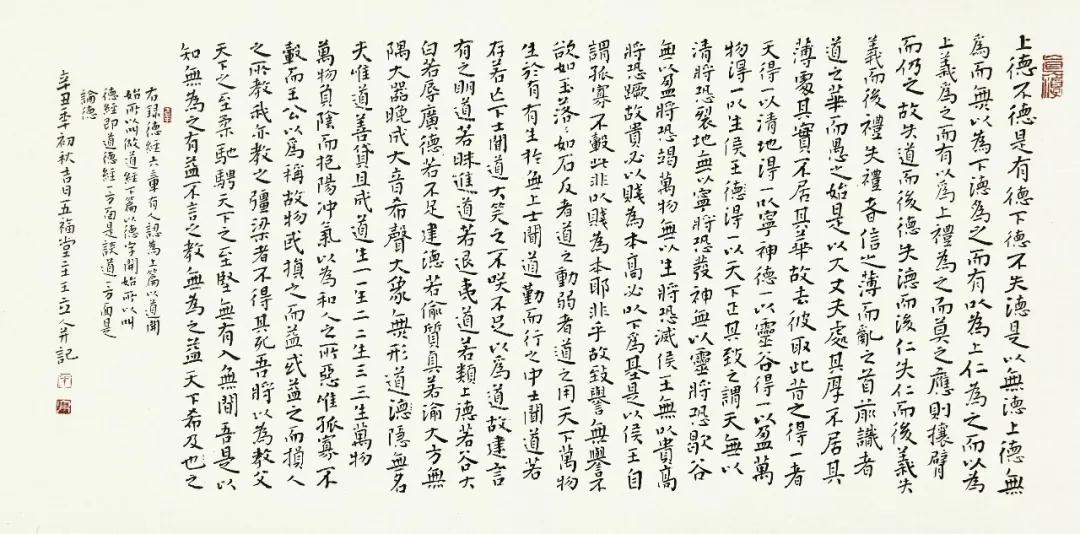 上德不德是有德下德不失德是以無德上德無
為而無以為下德為之而有以為上仁為之而以為
上義為之而有以為上禮為之而莫之應則攘臂
而仍之故失道而後德失德而後仁失仁而後義失
義而後禮失禮者信之薄而亂之首前識者
道之華而愚之始是以大丈夫處其厚不居其
薄處其實不居其華故去彼取此昔之得一者
天得一以清地得一以寧神德一以靈谷得一以盈萬
物得一以生侯王德得一以天下正其致之謂天無以
清將恐裂地無以寧將恐發神無以靈將恐歇谷
無以盈將恐竭萬物無以生將恐滅侯王無以貴高
將恐蹶故貴必以賤為本高必以下為基是以侯王自
謂孤寡不轂此非以賤為本耶非乎故致譽無譽不
欲如玉落:如石反者道之動弱者道之用天下萬物
生於有有生於無上士聞道勤而行之中士聞道若
存若亡下士聞道大笑之不咲不足以為道故建言
有之明道若昧進道若退夷道若類上德若谷大
白若辱廣德若不足建德若偷質真若渝大方無
隅大器晚成大音希聲大象無形道德隱無名
夫唯道善貸且成道生一一生二二生三三生萬物
萬物負陰而抱陽冲氣以為和人之所惡惟孤寡不
轂而王公以為稱故物或損之而益或益之而損人
之所教我亦教之彊梁者不得其死吾將以為教父
天下之至柔馳騁天下之至堅無有入無間吾是以
知無為之有益不言之教無為之益天下希及也之
右錄德經六章有人認為上篇以道開
始所以叫做道經下篇以德字開始所以叫
德經即道德經一方面是談道一方面是
論德
辛丑年初秋吉日五福堂主王立人并記